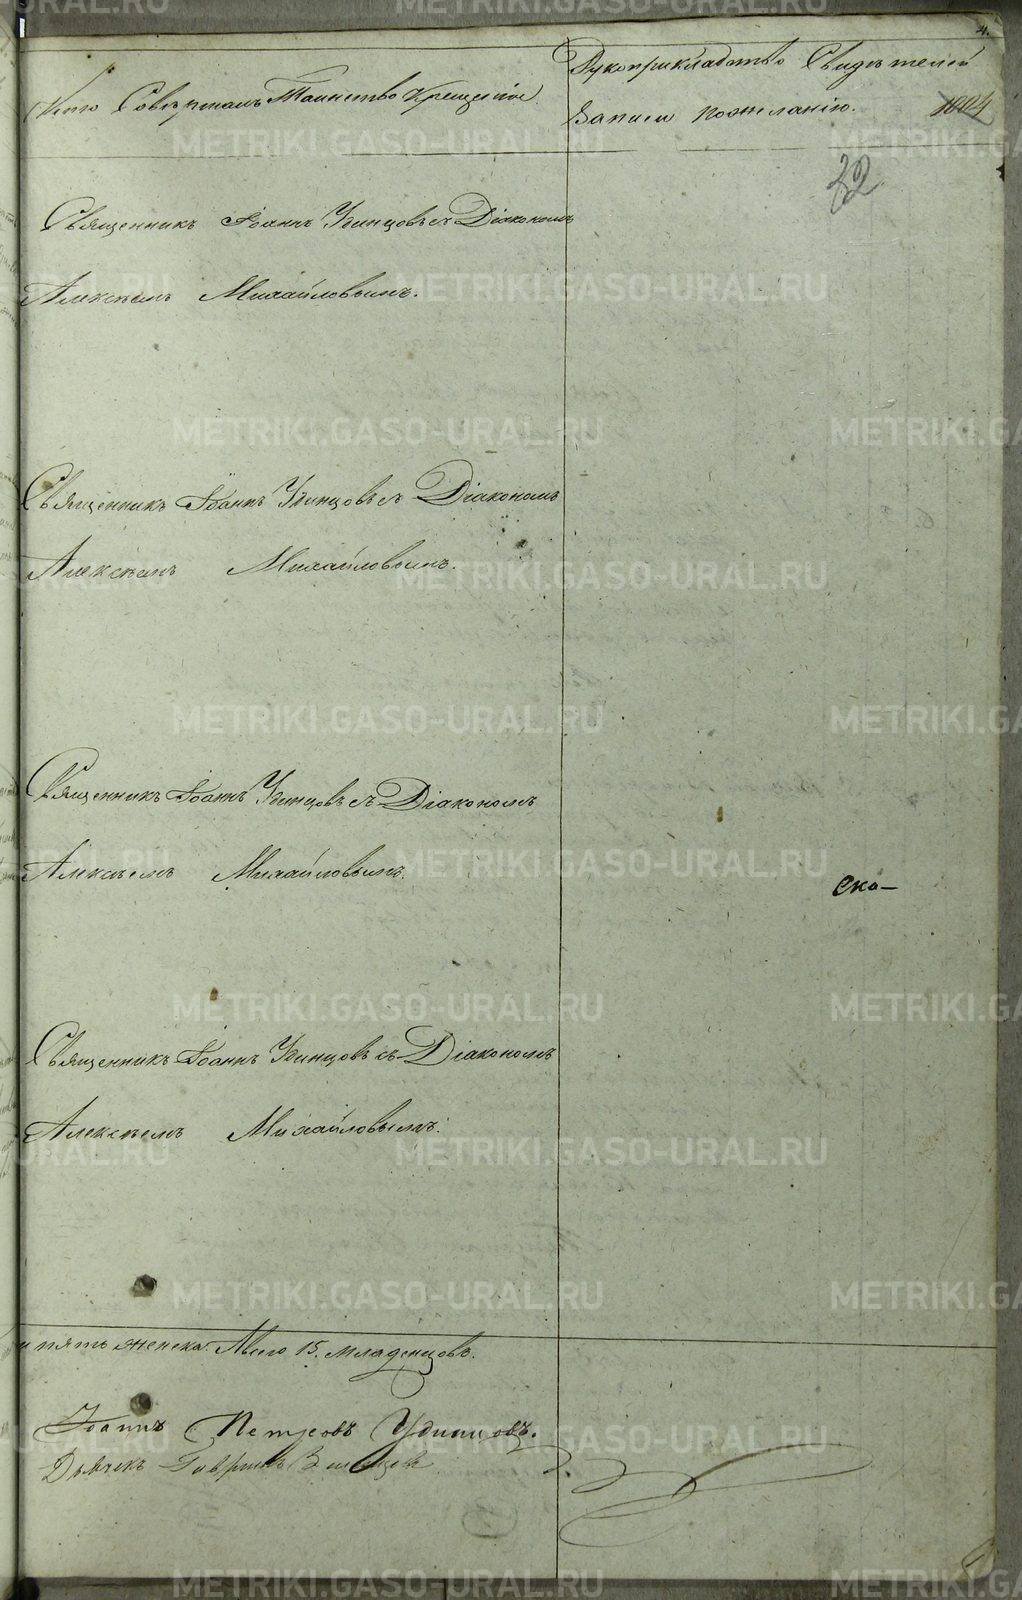 4.
Кто Совершалъ Таинство Крещенія.
Рукоприкладство Свидѣтелей
Записи пожеланію.
1004
32
Священникъ Іоаннъ Удинцовъ съ Діакономъ
Алексѣемъ Михайловымъ.
Священникъ Іоаннъ Удинцовъ съ Діакономъ
Алексѣемъ Михайловымъ.
Священникъ Іоаннъ Удинцовъ съ Діакономъ
Алексѣемъ Михайловымъ.
Ска-
Священникъ Іоаннъ Удинцовъ съ Діакономъ
Алексѣемъ Михайловымъ.
и пять женска. Авсего 15. младенцовъ.
Іоаннъ Петровъ Удинцовъ.
Дьячекъ Гаврилъ
METRIKI.GASO-URAL.RU